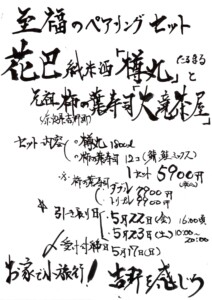 至福のペアリングセット
花巴 純米酒「樽丸」と
たるまる
元祖 柿の葉寿司「大滝茶屋」
(奈良県吉野町)
セット内容
樽丸 1800ml
柿の葉寿司 12コ (鯖、鮭ミックス)
1セット 5900円
(税込)
柿の葉寿司
ダブル 7900円
トリプル 9900円
引き取り日
5月22日(金) 16:00頃
5月23日(土) 10:00〜20:00
受付〆切日
5月17日(日)
お家で小旅行! 吉野を感じろ